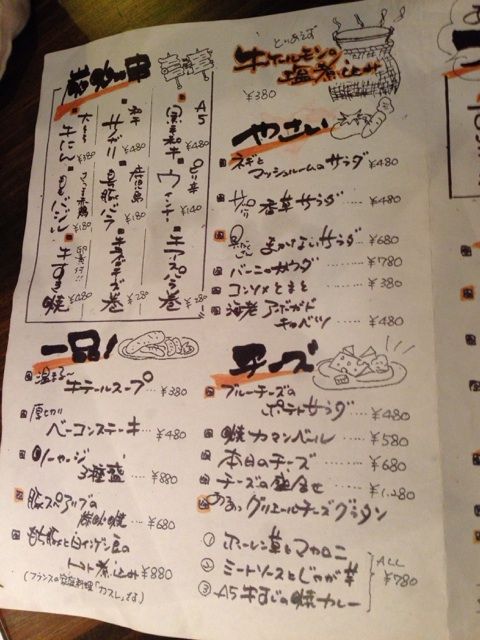 とりあえず
牛ホルモンの
塩煮込み
¥380
やさい
ネギと
マッシュルームのサラダ ¥480
香草サラダ ¥480
まかないサラダ ¥680
バーニャカウダ ¥780
コンソメとまと ¥380
海老アボガド
キャベツ ¥480
チーズ
ブルーチーズの
ポテトサラダ ¥480
焼カマンベール ¥580
本日のチーズ ¥680
チーズの盛合せ ¥1,280
グリエールチーズグラタン
① ホーレン草とマカロニ
② ミートソースとじゃが芋
③ A5牛すじの焼カレー
ALL
¥780
A5
黒毛和牛 ¥480
ウインナー ¥140
牛アスパラ巻 ¥280
和牛
サガリ ¥480
鹿児島
黒豚バラ ¥180
チーズ巻 ¥280
牛たん ¥380
ももバジル ¥180
牛すき焼 ¥480
一品!
温まる〜
牛テールスープ ¥380
厚切り
ベーコンステーキ ¥480
ソーセージ
3種盛 ¥880
豚スペアリブの
¥680
もち豚と白インゲン豆の
トマト煮込み ¥880
(フランスの家庭料理「カスレ」です)